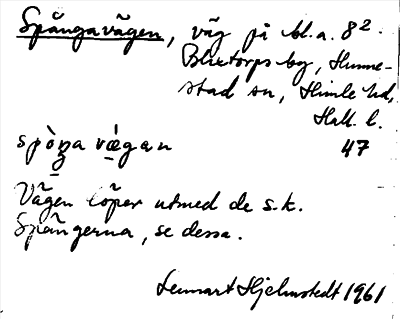 Spångavägen, väg på bl.a. 8².
Blixtorps by, Hunne-
stad sn, Himle hd,
Hall. l.
spòŋa væ̀gan 47
Vägen löper utmed de s.k.
Spångerna, se dessa.
Lennart Hjelmstedt 1961